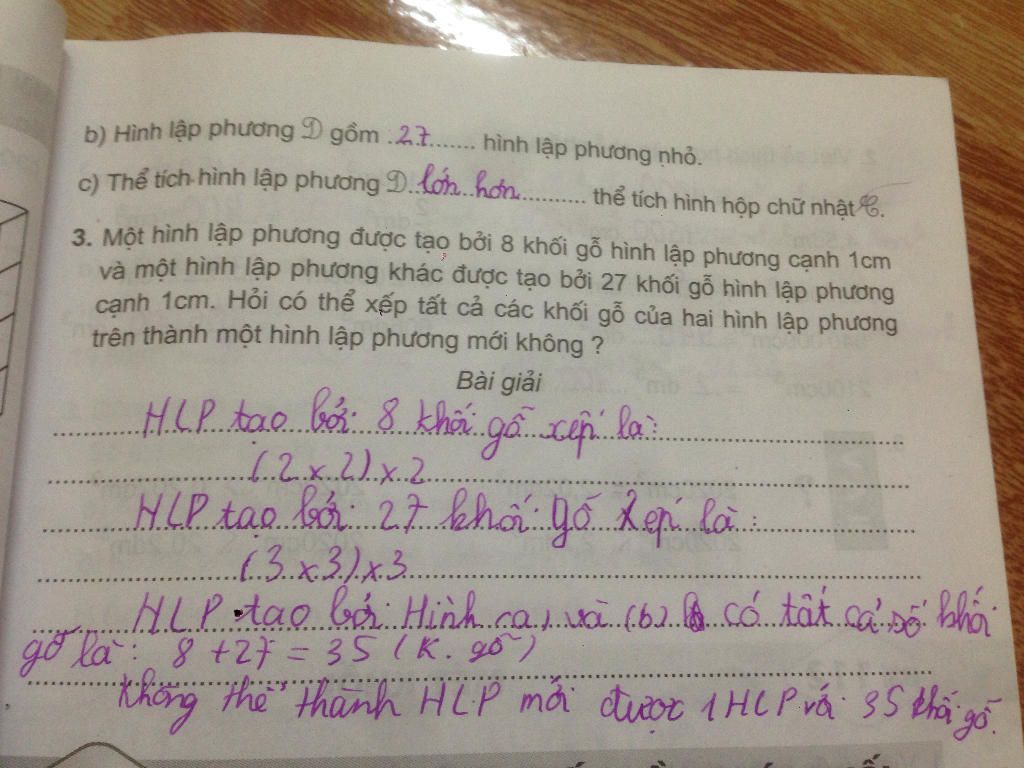 b) Hình lập phương D gồm .27........ hình lập phương nhỏ.
c) Thể tích hình lập phương D. lớn hơn .......... thể tích hình hộp chữ nhật C.
3. Một hình lập phương được tạo bởi 8 khối gỗ hình lập phương cạnh 1cm
và một hình lập phương khác được tạo bởi 27 khối gỗ hình lập phương
cạnh 1cm. Hỏi có thể xếp tất cả các khối gỗ của hai hình lập phương
trên thành một hình lập phương mới không ?
Bài giải
HLP tạo bởi 8 khối gỗ xếp là:
(2 x 2) x 2
HLP tạo bởi 27 khối gỗ xếp là:
(3 x 3) x 3
HLP tạo bởi Hình (a) và (b) có tất cả số khối
gỗ là: 8 + 27 = 35 (K. gỗ)
Không thể thành HLP mới được 1 HLP với 35 khối gỗ.